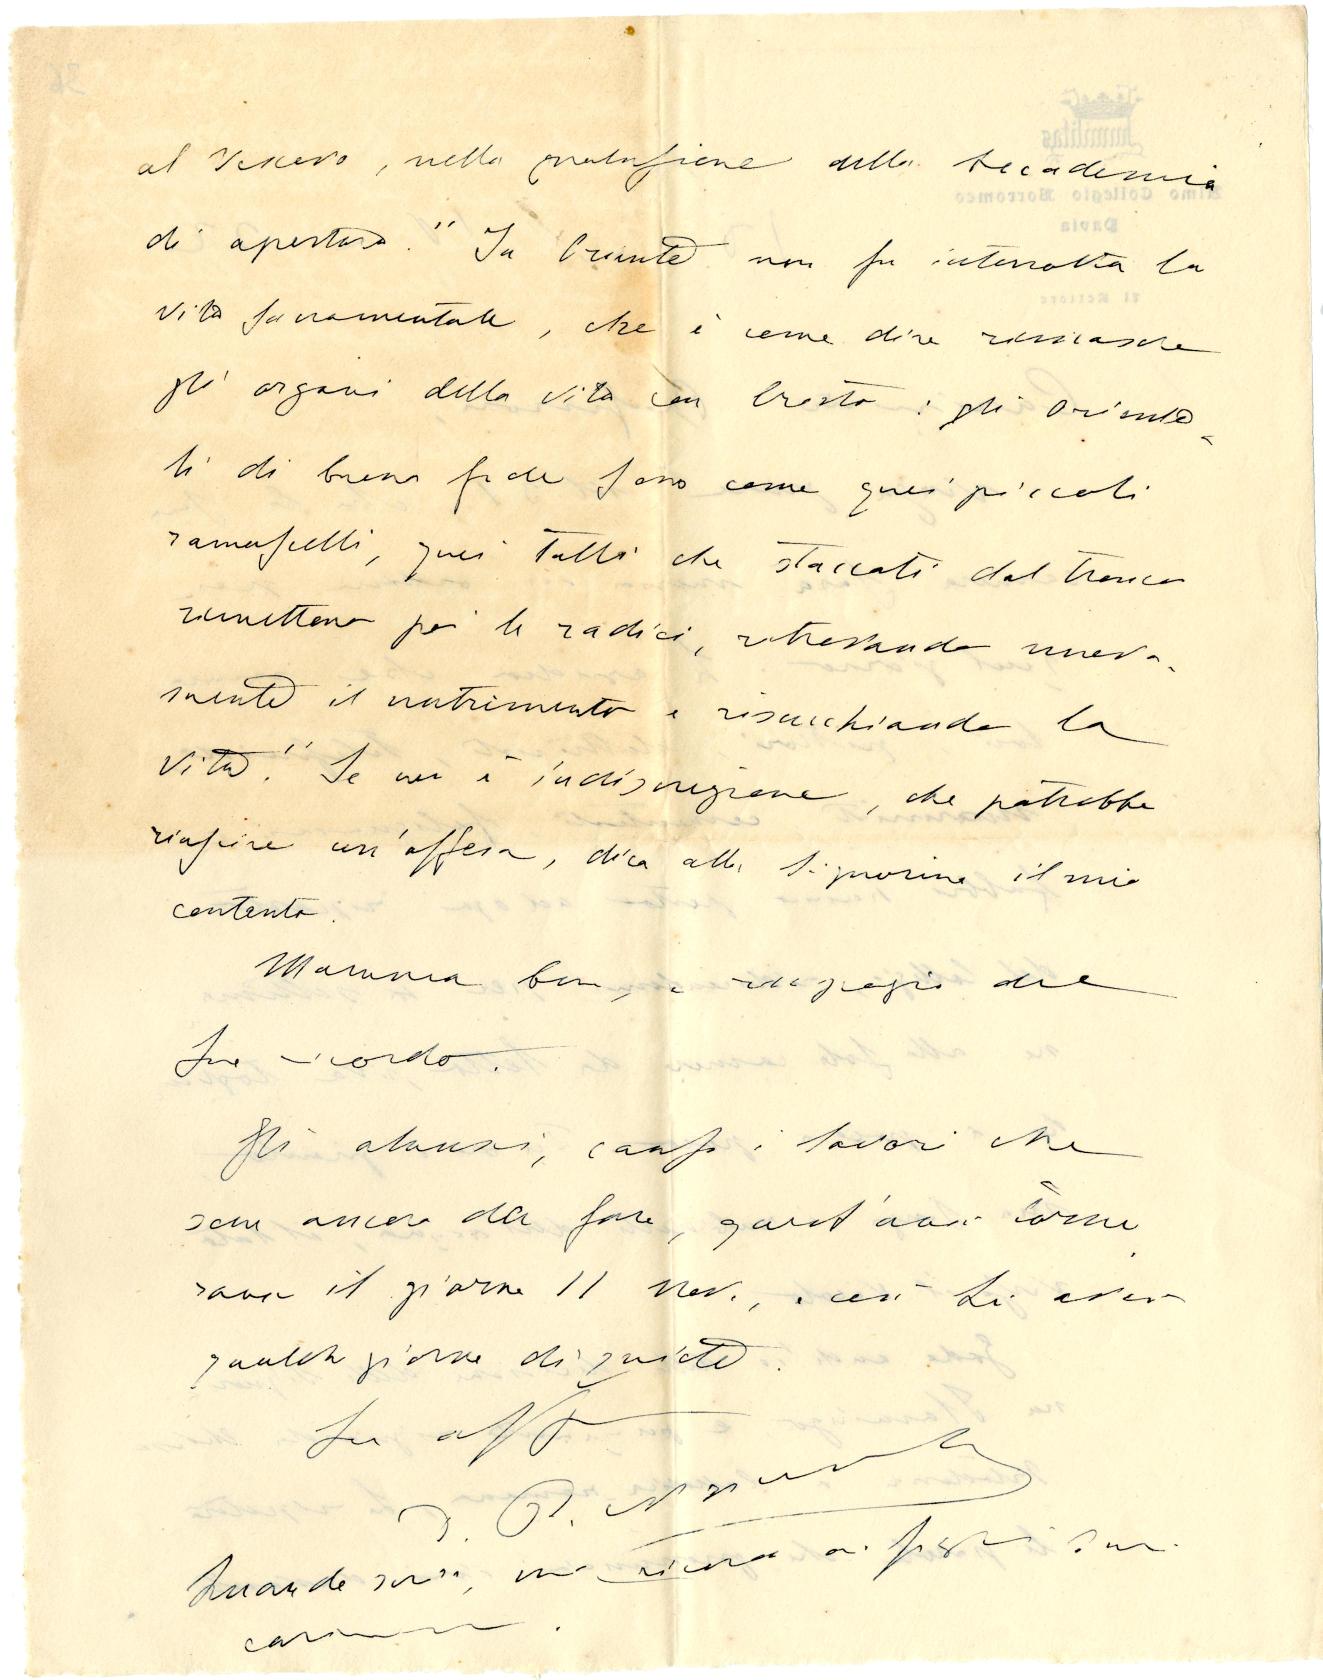 al Vescovo, nella prolusione della Accademia
di apertura." In Oriente non fu interrotta la
vita sacramentale, che è come dire rimasero
gli organi della vita con Cristo: gli Orienta-
li di buona fede sono come quei piccoli
ramoscelli, quei talli che staccati dal tronco
rimettono poi le radici, ritrovando nuova-
mente il nutrimento e risucchiando la
vita." Se non è indiscrezione, che potrebbe
riuscire un'offesa, dica alla Signorina il mio
contento.
Mamma bene, e ringrazia del
suo ricordo.
Gli alunni, causa i lavori che
sono ancora da fare, quest'anno torne
ranno il giorno 11 Nov., e così
qualche giorno di quiete.
Suo aff
Quando scrive, mi ricordi ai